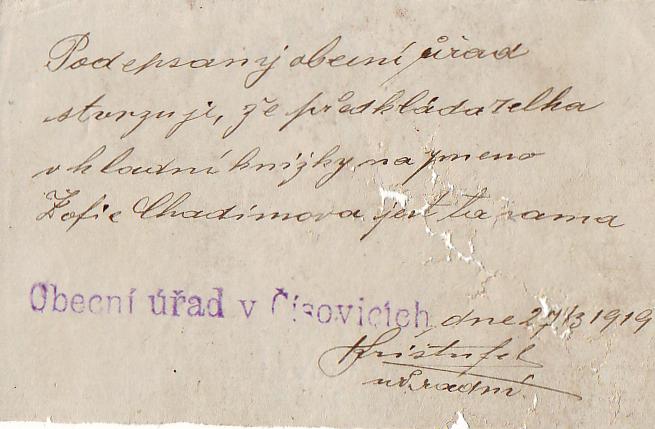 Podepsaný obecní úřad
stvrzuje, že předkládatelka
vkladní knížky na jmeno
Žofie Chadimova jest ta sama
Obecní úřad v Čisovicích, dne 27/3 1919
Krištufek